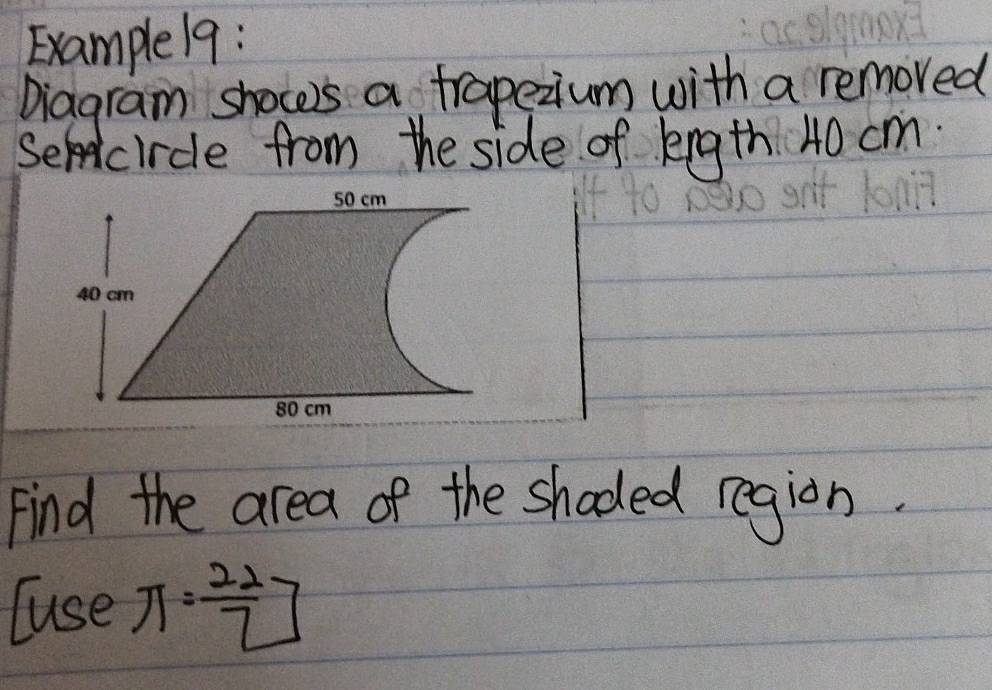 Example 19:
Diagram shows a trapezium with a removed
Semicircle from the side of length 40 cm.
50 cm
40 cm
80 cm
Find the area of the shaded region.
[use π = 22/7]